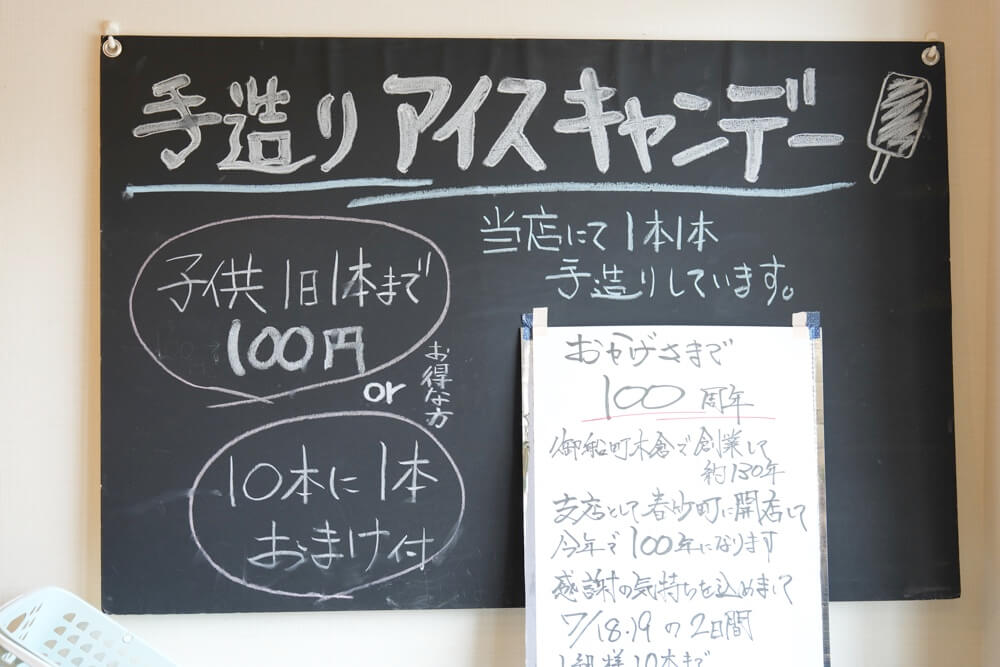 手造りアイスキャンデー
当店にて1本1本
手造りしています。
子供1日1本まで
100円
or
お得な方
10本に1本
おまけ付
おかげさまで
100周年
御船町木倉で創業して
約130年
支店として春竹町に開店して
今年で100年になります
感謝の気持ちを込めまして
7/18.19の2日間
10本まで